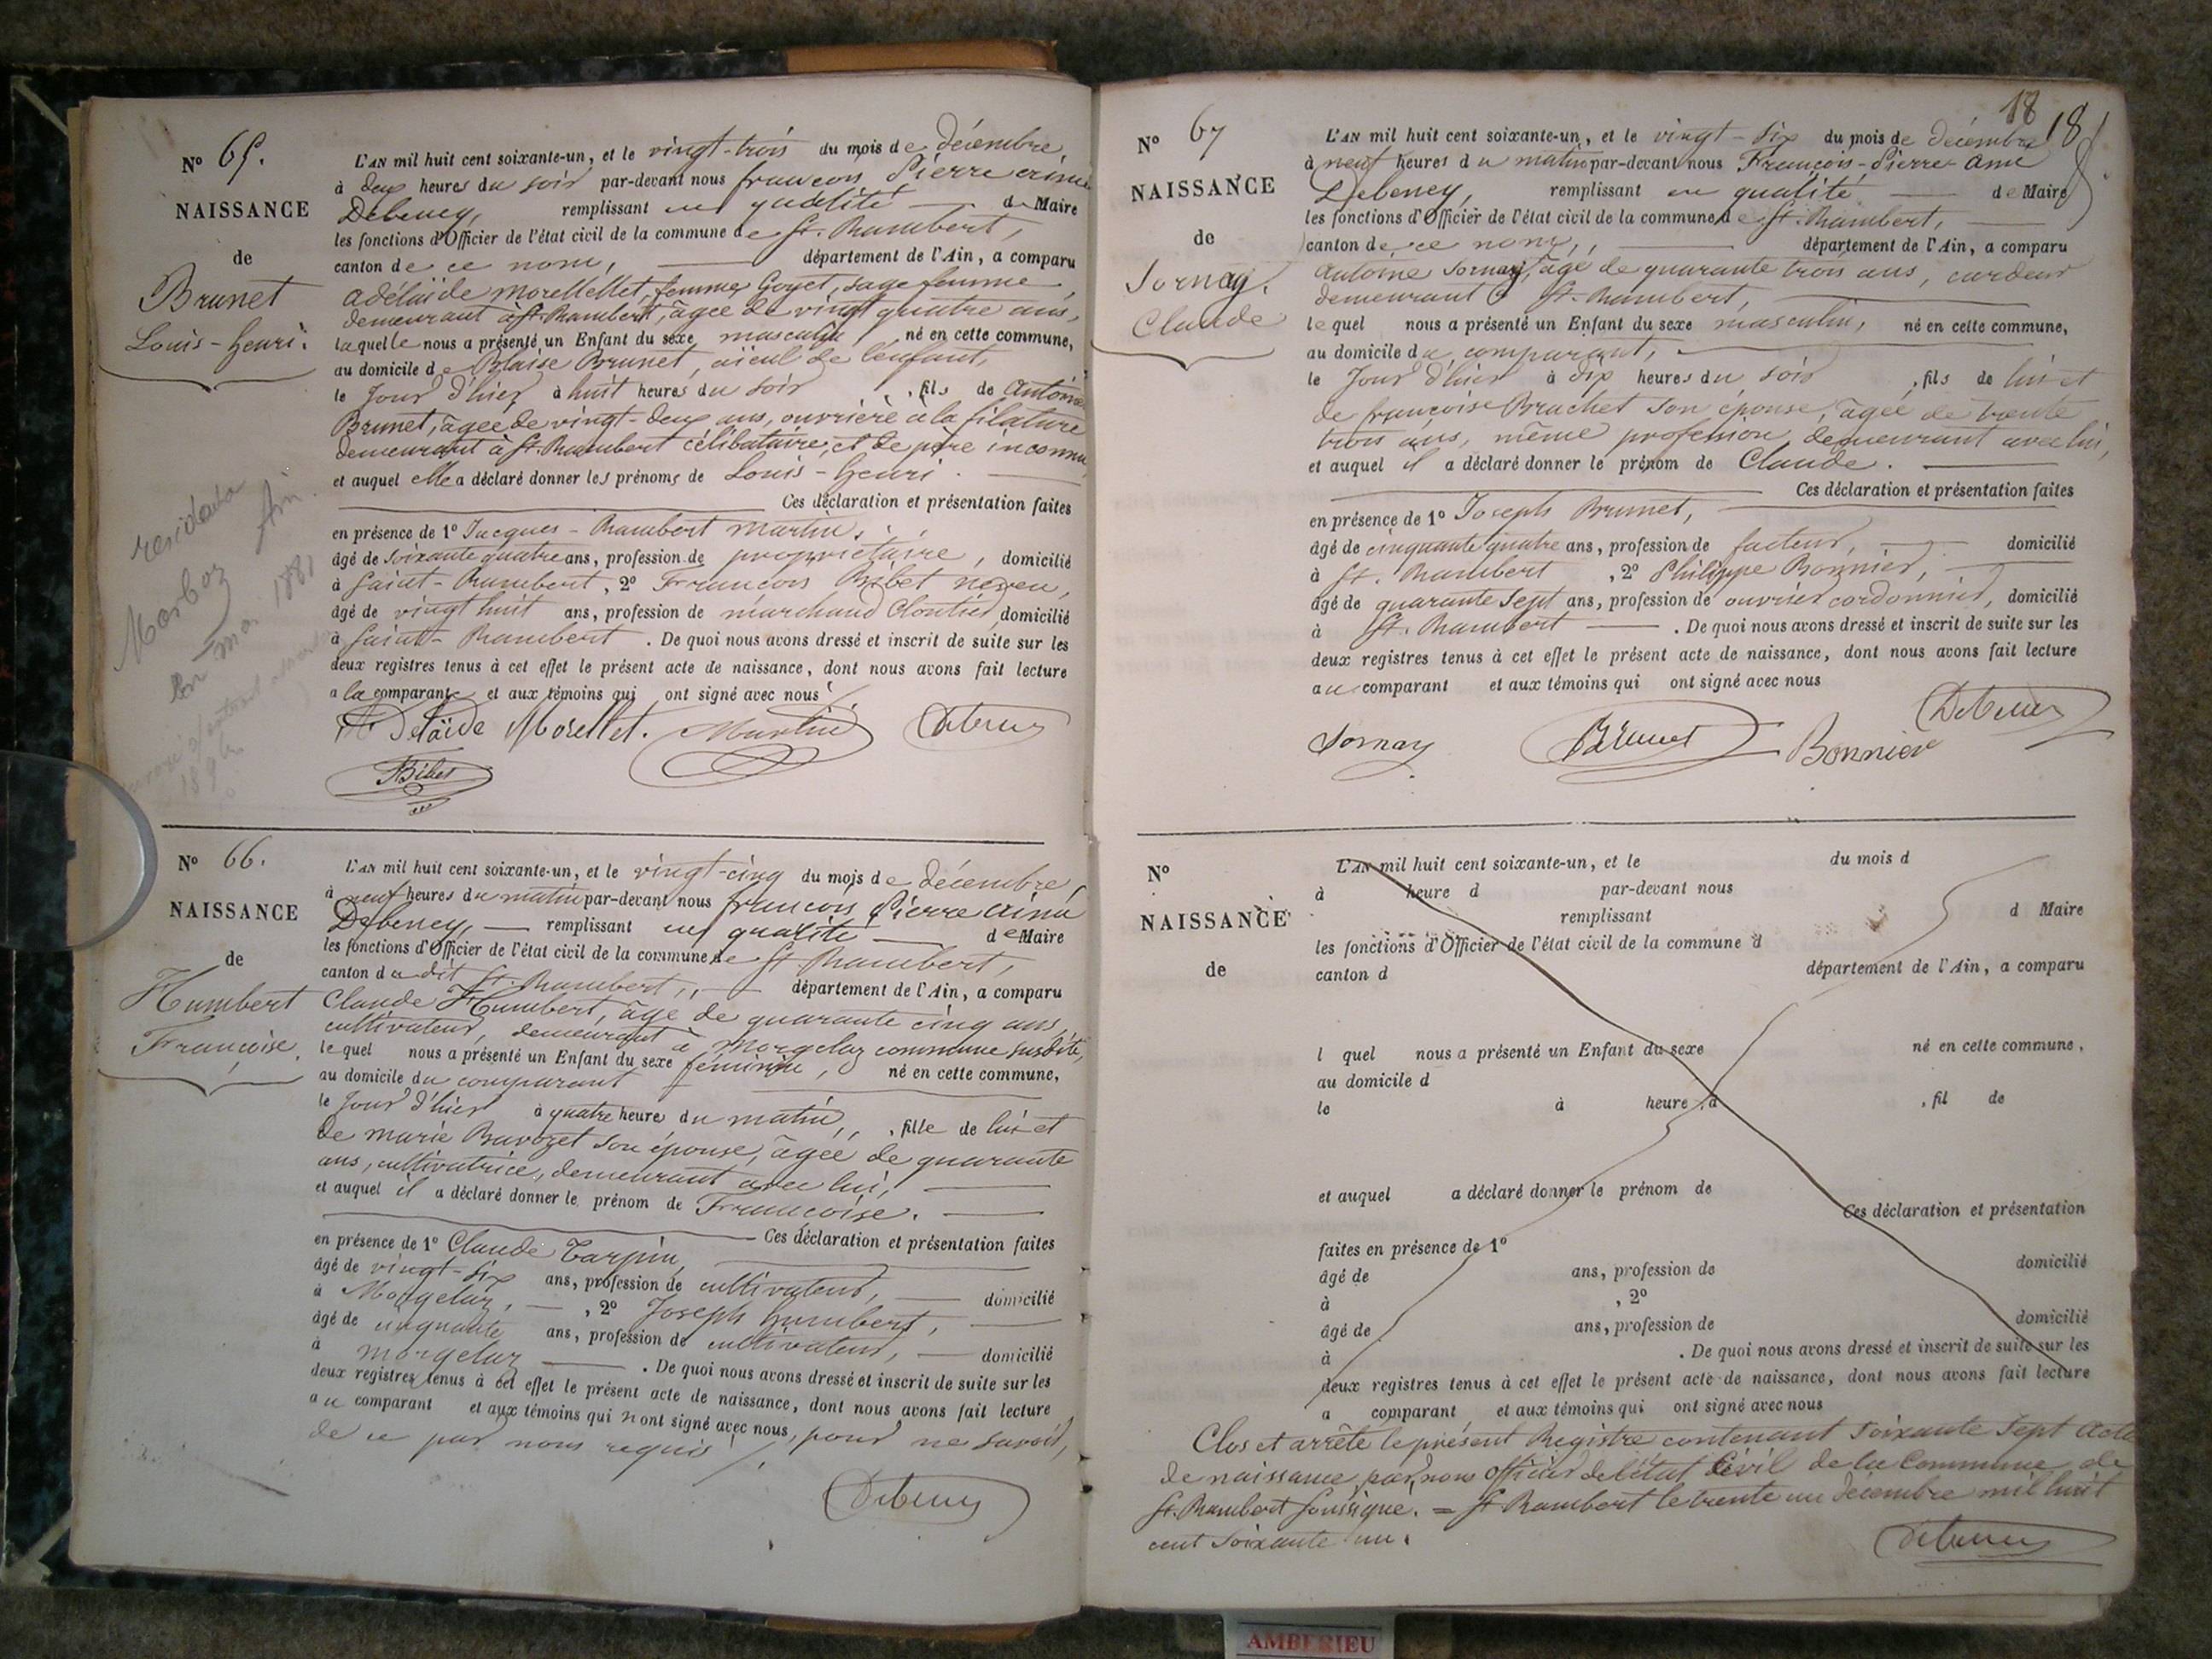 N° 65.
NAISSANCE
de
Brunet
Louis-henri.
L'AN mil huit cent soixante-un, et le vingt-trois du mois de décembre,
à deux heures du soir par-devant nous françois Pierre aimé
Debeney, remplissant en qualité de Maire
les fonctions d'Officier de l'état civil de la commune de St. Rambert,
canton de ce nom, département de l'Ain, a comparu
adélaïde morellellet, femme Goyet, sage femme,
demeurant à St. Rambert, âgée de vingt quatre ans,
laquelle nous a présenté un Enfant du sexe masculin, né en cette commune,
au domicile de Blaise Brunet, aïeul de l'enfant,
le Jour d'hier à huit heures du soir, fils de Antoinette
Brunet, âgée de vingt-deux ans, ouvrière à la filature
demeurant à St. Rambert célibataire, et de père inconnu,
et auquel elle a déclaré donner les prénoms de Louis-henri.
Ces déclaration et présentation faites
en présence de 1° Jacques-Rambert Martin,
âgé de soixante quatre ans, profession de propriétaire, domicilié
à Saint-Rambert, 2° François Bibet neveu,
âgé de vingt huit ans, profession de marchand Cloutier, domicilié
à Saint-Rambert. De quoi nous avons dressé et inscrit de suite sur les
deux registres tenus à cet effet le présent acte de naissance, dont nous avons fait lecture
a la comparante et aux témoins qui ont signé avec nous
Adelaïde Morellet. Martin Debeney
Bibet
residera
Marboz Ain.
1881
N° 66.
NAISSANCE
de
Humbert
Françoise.
L'AN mil huit cent soixante-un, et le vingt-cinq du mois de décembre,
à neuf heures du matin par-devant nous françois Pierre aimé
Debeney, remplissant en qualité de Maire
les fonctions d'Officier de l'état civil de la commune de St. Rambert,
canton dudit St. Rambert, département de l'Ain, a comparu
Claude Humbert, âgé de quarante cinq ans,
cultivateur, demeurant à Morgelaz commune susdite,
lequel nous a présenté un Enfant du sexe féminin, né en cette commune,
au domicile du comparant
le Jour d'hier à quatre heure du matin, fille de lui et
de marie Ravozet son épouse, âgée de quarante
ans, cultivatrice, demeurant avec lui,
et auquel il a déclaré donner le prénom de Françoise.
Ces déclaration et présentation faites
en présence de 1° Claude Tarpin,
âgé de vingt-six ans, profession de cultivateur, domicilié
à Morgelaz, 2° Joseph humbert,
âgé de cinquante ans, profession de cultivateur, domicilié
à morgelaz. De quoi nous avons dressé et inscrit de suite sur les
deux registres tenus à cet effet le présent acte de naissance, dont nous avons fait lecture
au comparant et aux témoins qui n'ont signé avec nous, pour ne savoir,
de ce par nous requis
Debeney
18 18
N° 67
NAISSANCE
de
Jornay.
Claude
L'AN mil huit cent soixante-un, et le vingt-six du mois de décembre
à neuf heures du matin par-devant nous François-Pierre-Aimé
Debeney, remplissant en qualité de Maire
les fonctions d'Officier de l'état civil de la commune de St. Rambert,
canton de ce nom, département de l'Ain, a comparu
Antoine Jornay, âgé de quarante trois ans, cardeur
demeurant à St. Rambert,
lequel nous a présenté un Enfant du sexe masculin, né en cette commune,
au domicile du comparant,
le Jour d'hier à dix heures du soir, fils de lui et
de françoise Brachet son épouse, âgée de trente
trois ans, même profession, demeurant avec lui,
et auquel il a déclaré donner le prénom de Claude.
Ces déclaration et présentation faites
en présence de 1° Joseph Brunet,
âgé de cinquante quatre ans, profession de facteur, domicilié
à St. Rambert, 2° Philippe Bonnier,
âgé de quarante sept ans, profession de ouvrier cordonnier, domicilié
à St. Rambert. De quoi nous avons dressé et inscrit de suite sur les
deux registres tenus à cet effet le présent acte de naissance, dont nous avons fait lecture
au comparant et aux témoins qui ont signé avec nous
Jornay Brunet Bonnier Debeney
N°
NAISSANCE
de
L'AN mil huit cent soixante-un, et le du mois d
à heure d par-devant nous
remplissant d Maire
les fonctions d'Officier de l'état civil de la commune d
canton d département de l'Ain, a comparu
l quel nous a présenté un Enfant du sexe né en cette commune,
au domicile d
le à heure d, fil de
et auquel a déclaré donner le prénom de
Ces déclaration et présentation
faites en présence de 1°
âgé de ans, profession de domicilié
à , 2°
âgé de ans, profession de domicilié
à . De quoi nous avons dressé et inscrit de suite sur les
deux registres tenus à cet effet le présent acte de naissance, dont nous avons fait lecture
a comparant et aux témoins qui ont signé avec nous
Clos et arrêté le présent Registre contenant soixante sept acte
de naissance par nous officier de l'état civil de la Commune de
St. Rambert soussigné. = St Rambert le trente un décembre mil huit
cent soixante un.
Debeney
AMBERIEU